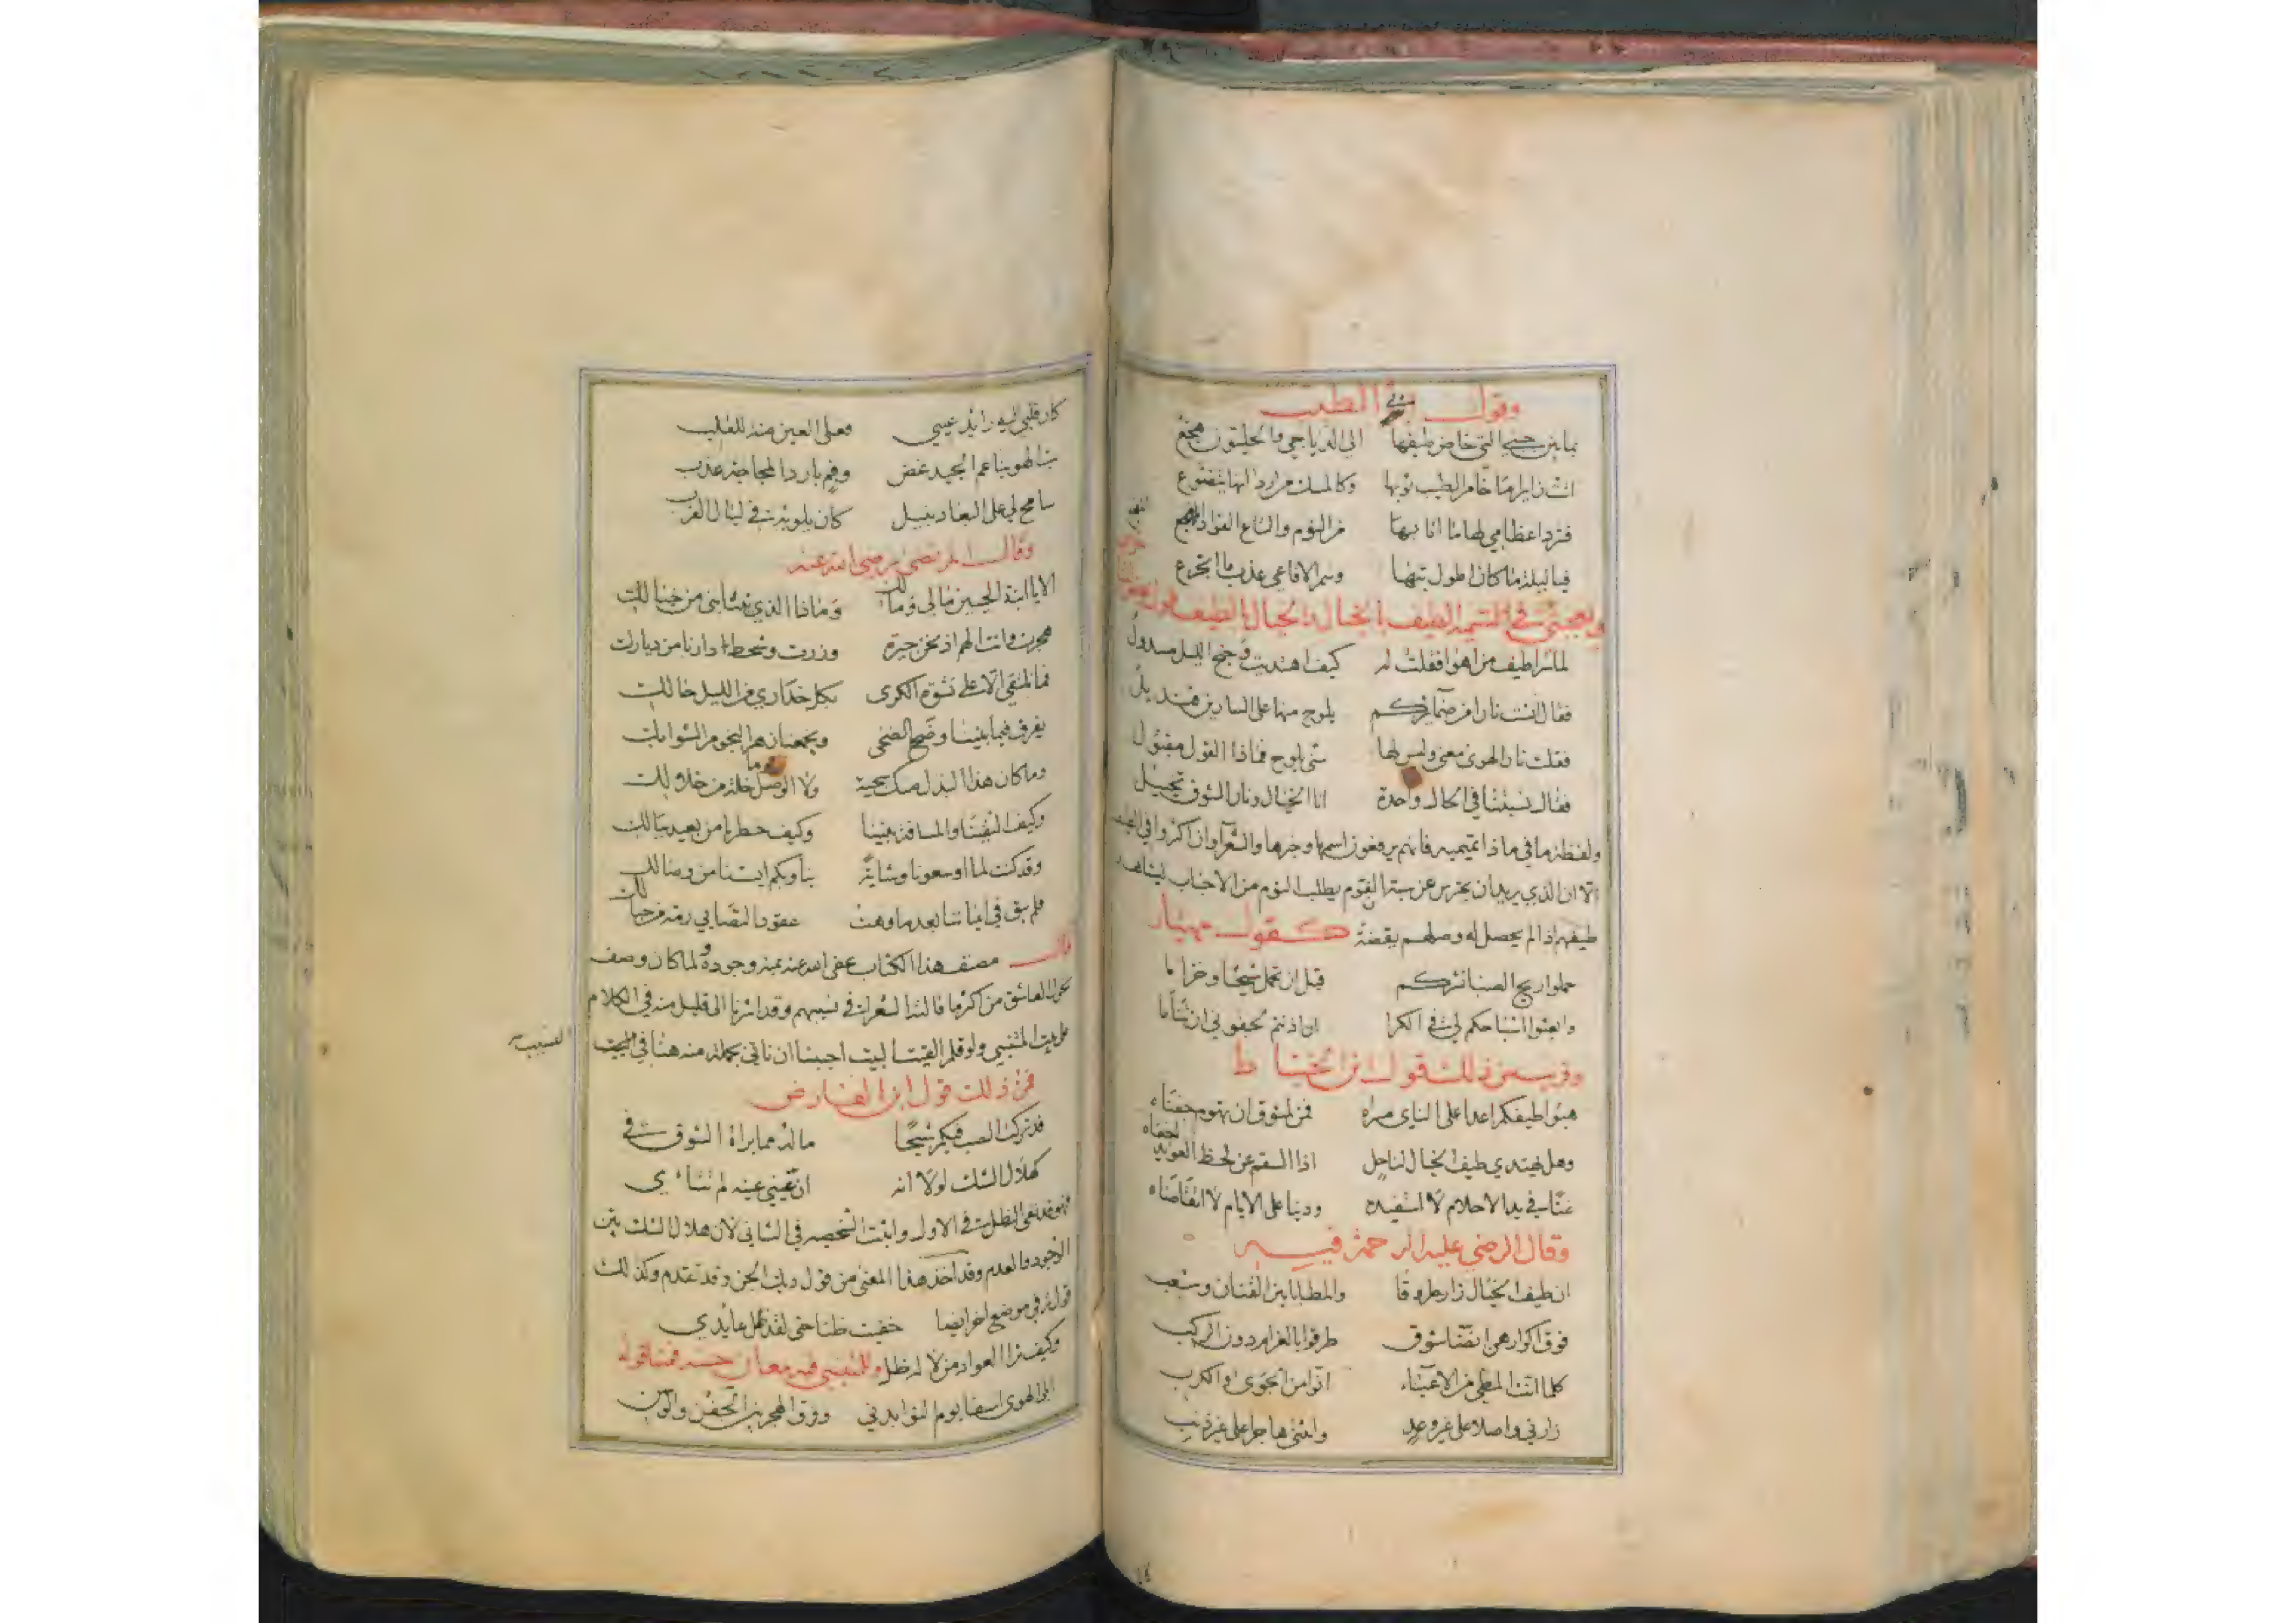 وقول ابي الطيب
بما بين جنبي التي خاض طيفها الى الدياجي والخليون هجع
اتت زايرا ما خامر الطيب ثوبها وكالمسك من اردانها يتضوع
فشرد اعظامي لها ما اتا بها من النوم والتاع الفواد المفجع
فيا ليلة ما كان اطول بتها وسم الافاعي عذب ما اتجرع
ويعجبني في تشبيه الطيف بالخيال والخيال بالطيف قول
لما سرا طيف من اهوا فقلت له كيف اهتديت وجنح الليل مسدول
فقال انست نارا من ضمايركم يلوح منها على السارين قنديل
فقلت نار الهوى معنى وليس لها شي يلوح فماذا القول مقبول
فقال نسبتنا في الحال واحدة انا الخيال ونار الشوق تخييل
ولفظة ما في ماذا تميمية فانهم يرفعون اسمها وخبرها والشعرآ وان اكثروا في
الا ان الذي يريد ان يحترس عن ستر القوم يطلب النوم من الاجناب ليشاهد
طيفهم اذا لم يحصل له وصلهم يقضة كقول مهيار
حملوا ريح الصبا نشركم قبل ان تحمل شيحا وخزاما
وابعثوا اشباحكم لي في الكرا ان اذنتم لجفوني ان تناما
وقريب من ذلك قول ابن الخياط
هبوا طيفكم اعدا على الناي مسراه فمن لمشوق ان يهوم جفناه
وهل يهتدي طيف الخيال لناحل اذا السقم عن لحظ العوايد اخفاه
غنا في يد الاحلام لا استفيده ودينا على الايام لا اتقاضاه
وقال الرضي عليه الرحمة فيه
ان طيف الخيال زار طروقا والمطايا بين القنان وشعب
فوق اكوارهن انضا شوق طرقوا بالغرام دون الركب
كلما انت المطي من الاعياء انوا من الجوى والكرب
زارني واصلا على غير وعد وانثنى هاجرا على غير ذنب
كان قلبي اليه رائد عيني فعلى العين منة للقلب
بت الهو بناعم الجيد غض وفم بارد المجاجة عذب
سامح لي على البعاد بنيل كان يلويه في ليال القرب
وقال المرتضى رضي الله عنه
الا يا ابنة الحيين مالي وما لك وماذا الذي ينتابني من خيالك
هجرت وانت الهم اذ نحن جيرة وزرت وشحط دارنا من ديارك
فما نلتقي الا على نشوة الكرى بكل خداري من الليل حالك
يفرق فيما بيننا وضح الضحى ويجمعنا زهر النجوم الشوابك
وما كان هذا البذل منك سجية ولا الوصل يوما خلة من خلالك
وكيف التقينا والمسافة بيننا وكيف خطرنا من بعيد ببالك
وقد كنت لما اوسعونا وشاية بنا وبكم ايستنا من وصالك
فلم يبق في ايماننا بعد ما وهت عقود التصابي رمة من حبالك
قال مصنف هذا الكتاب عفى الله عنه بمنه وجوده ولما كان وصف
نحول العاشق من اكثر ما قالته الشعرات في نسيبهم وقد اشرنا الى قليل منه في الكلام
على بيت المتنبي ولو قلم القيت البيت احببنا ان ناتي بجملة منه هنا في البيت
النسيب
فمن ذلك قول ابن الفارض
قد تركت الصب فيكم شبحا ماله مما براه الشوق في
كهلال الشك لولا انه ان عيني عينه لم تتاي
فهو قد نفى الظل في الاول واثبت الشخصه في الثاني لان هلال الشك بين
الوجود والعدم وقد اخذ هذا المعنى من قول ديك الجن وقد تقدم وكذلك
قوله في موضع اخر ايضا خفيت ظنا حتى لقد ضل عايدي
وكيف ترا العواد من لا له ظل وللمتنبي فيه معان حسنه فمنها قوله
ابلى الهوى اسفا يوم النوا بدني وفرق الهجر بين الجفن والوسن